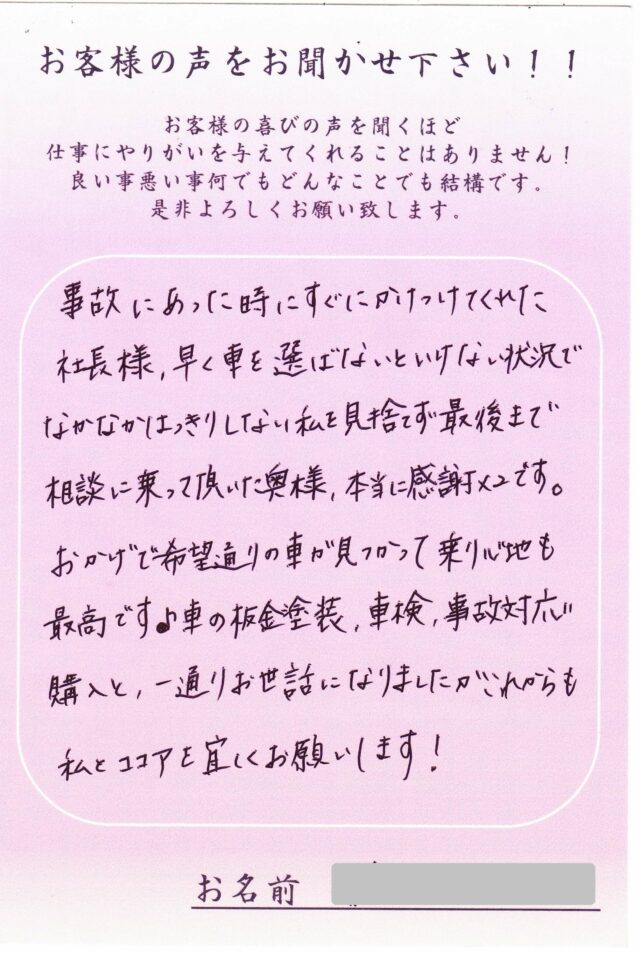 お客様の声をお聞かせ下さい！！
お客様の喜びの声を聞くほど
仕事にやりがいを与えてくれることはありません！
良い事悪い事何でもどんなことでも結構です。
是非よろしくお願い致します。
事故にあった時にすぐにかけつけてくれた
社長様,早く車を選ばないといけない状況で
なかなかはっきりしない私を見捨てず最後まで
相談に乗って頂いた奥様,本当に感謝×2です。
おかげで希望通りの車が見つかって乗り心地も
最高です♪車の板金塗装,車検,事故対応,
購入と,一通りお世話になりましたがこれからも
私とココアを宜しくお願いします！
お名前